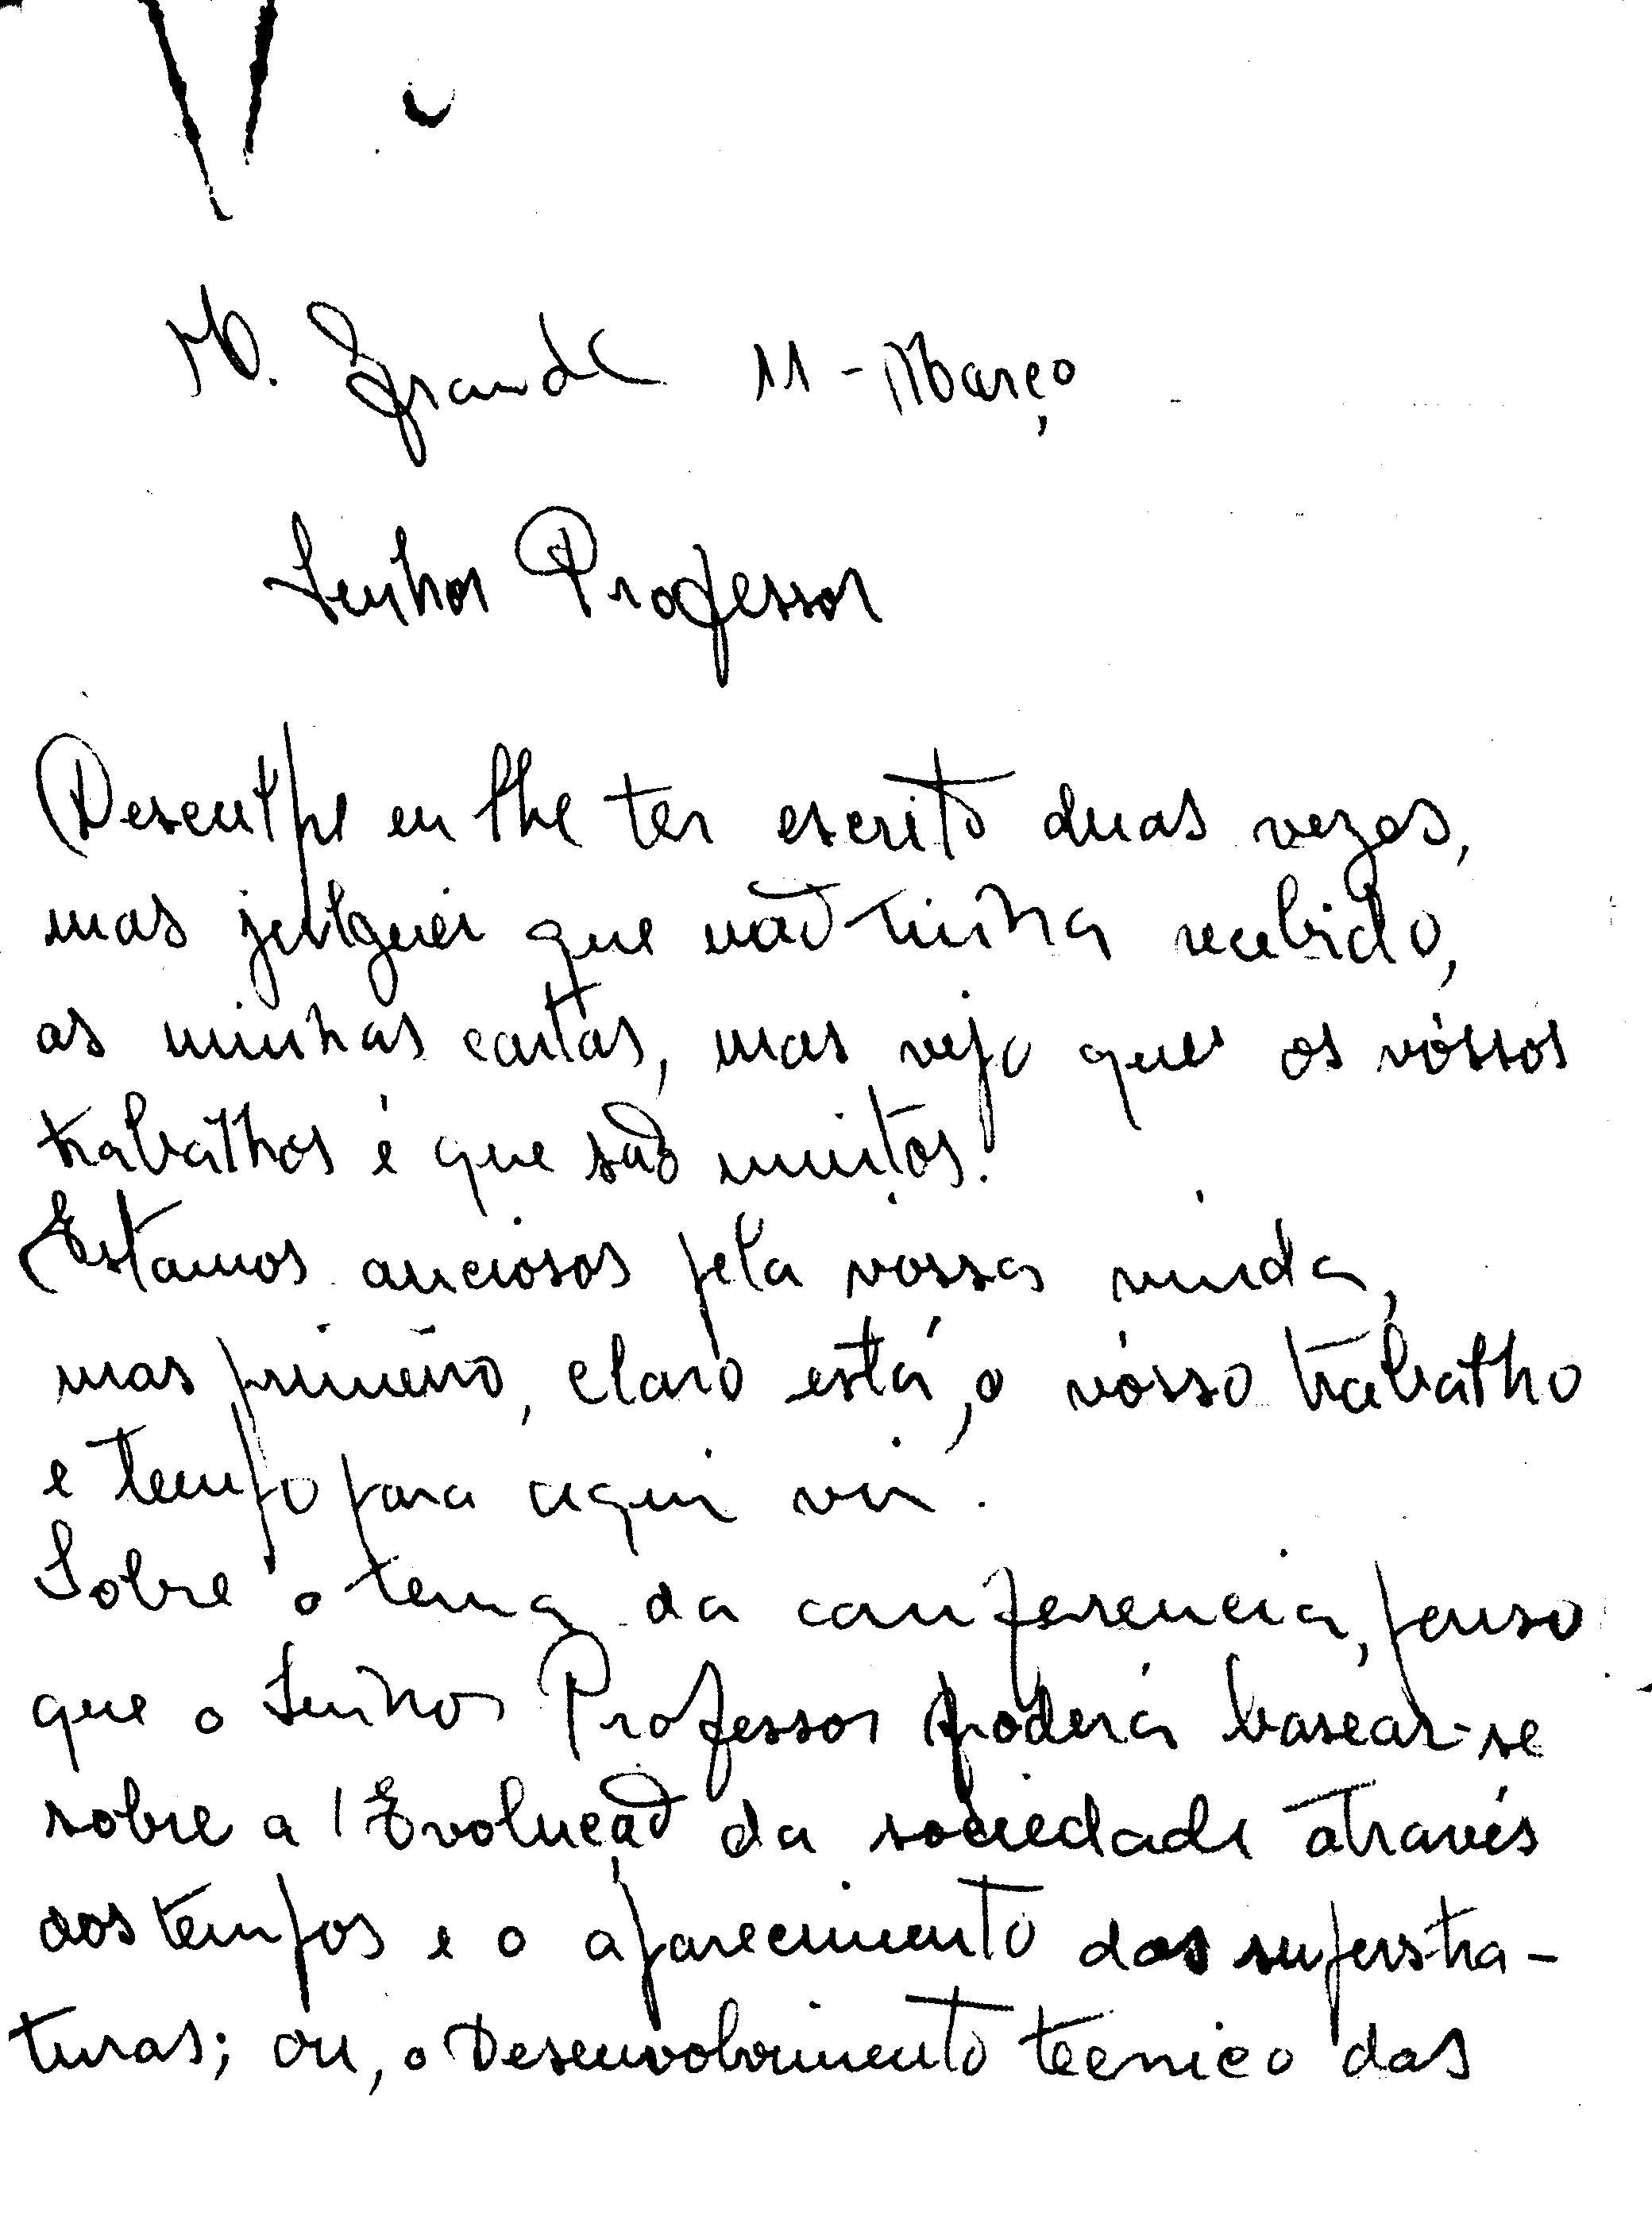 M. Grande 11 - Março
Senhor Professor
Desculpe eu lhe ter escrito duas vezes,
mas julguei que não tinha recebido,
as minhas cartas, mas vejo que os vóssos
trabalhos é que são muitos.
Estamos anciosos pela vossa vinda,
mas primeiro, claro está, o vósso trabalho
e tempo para aqui vir.
Sobre o tema da conferencia, penso
que o Senhor Professor poderá basear-se
sobre a Evolução da sociedade através
dos tempos e o aparecimento das superstra-
turas; ou, o Desenvolvimento tecnico das